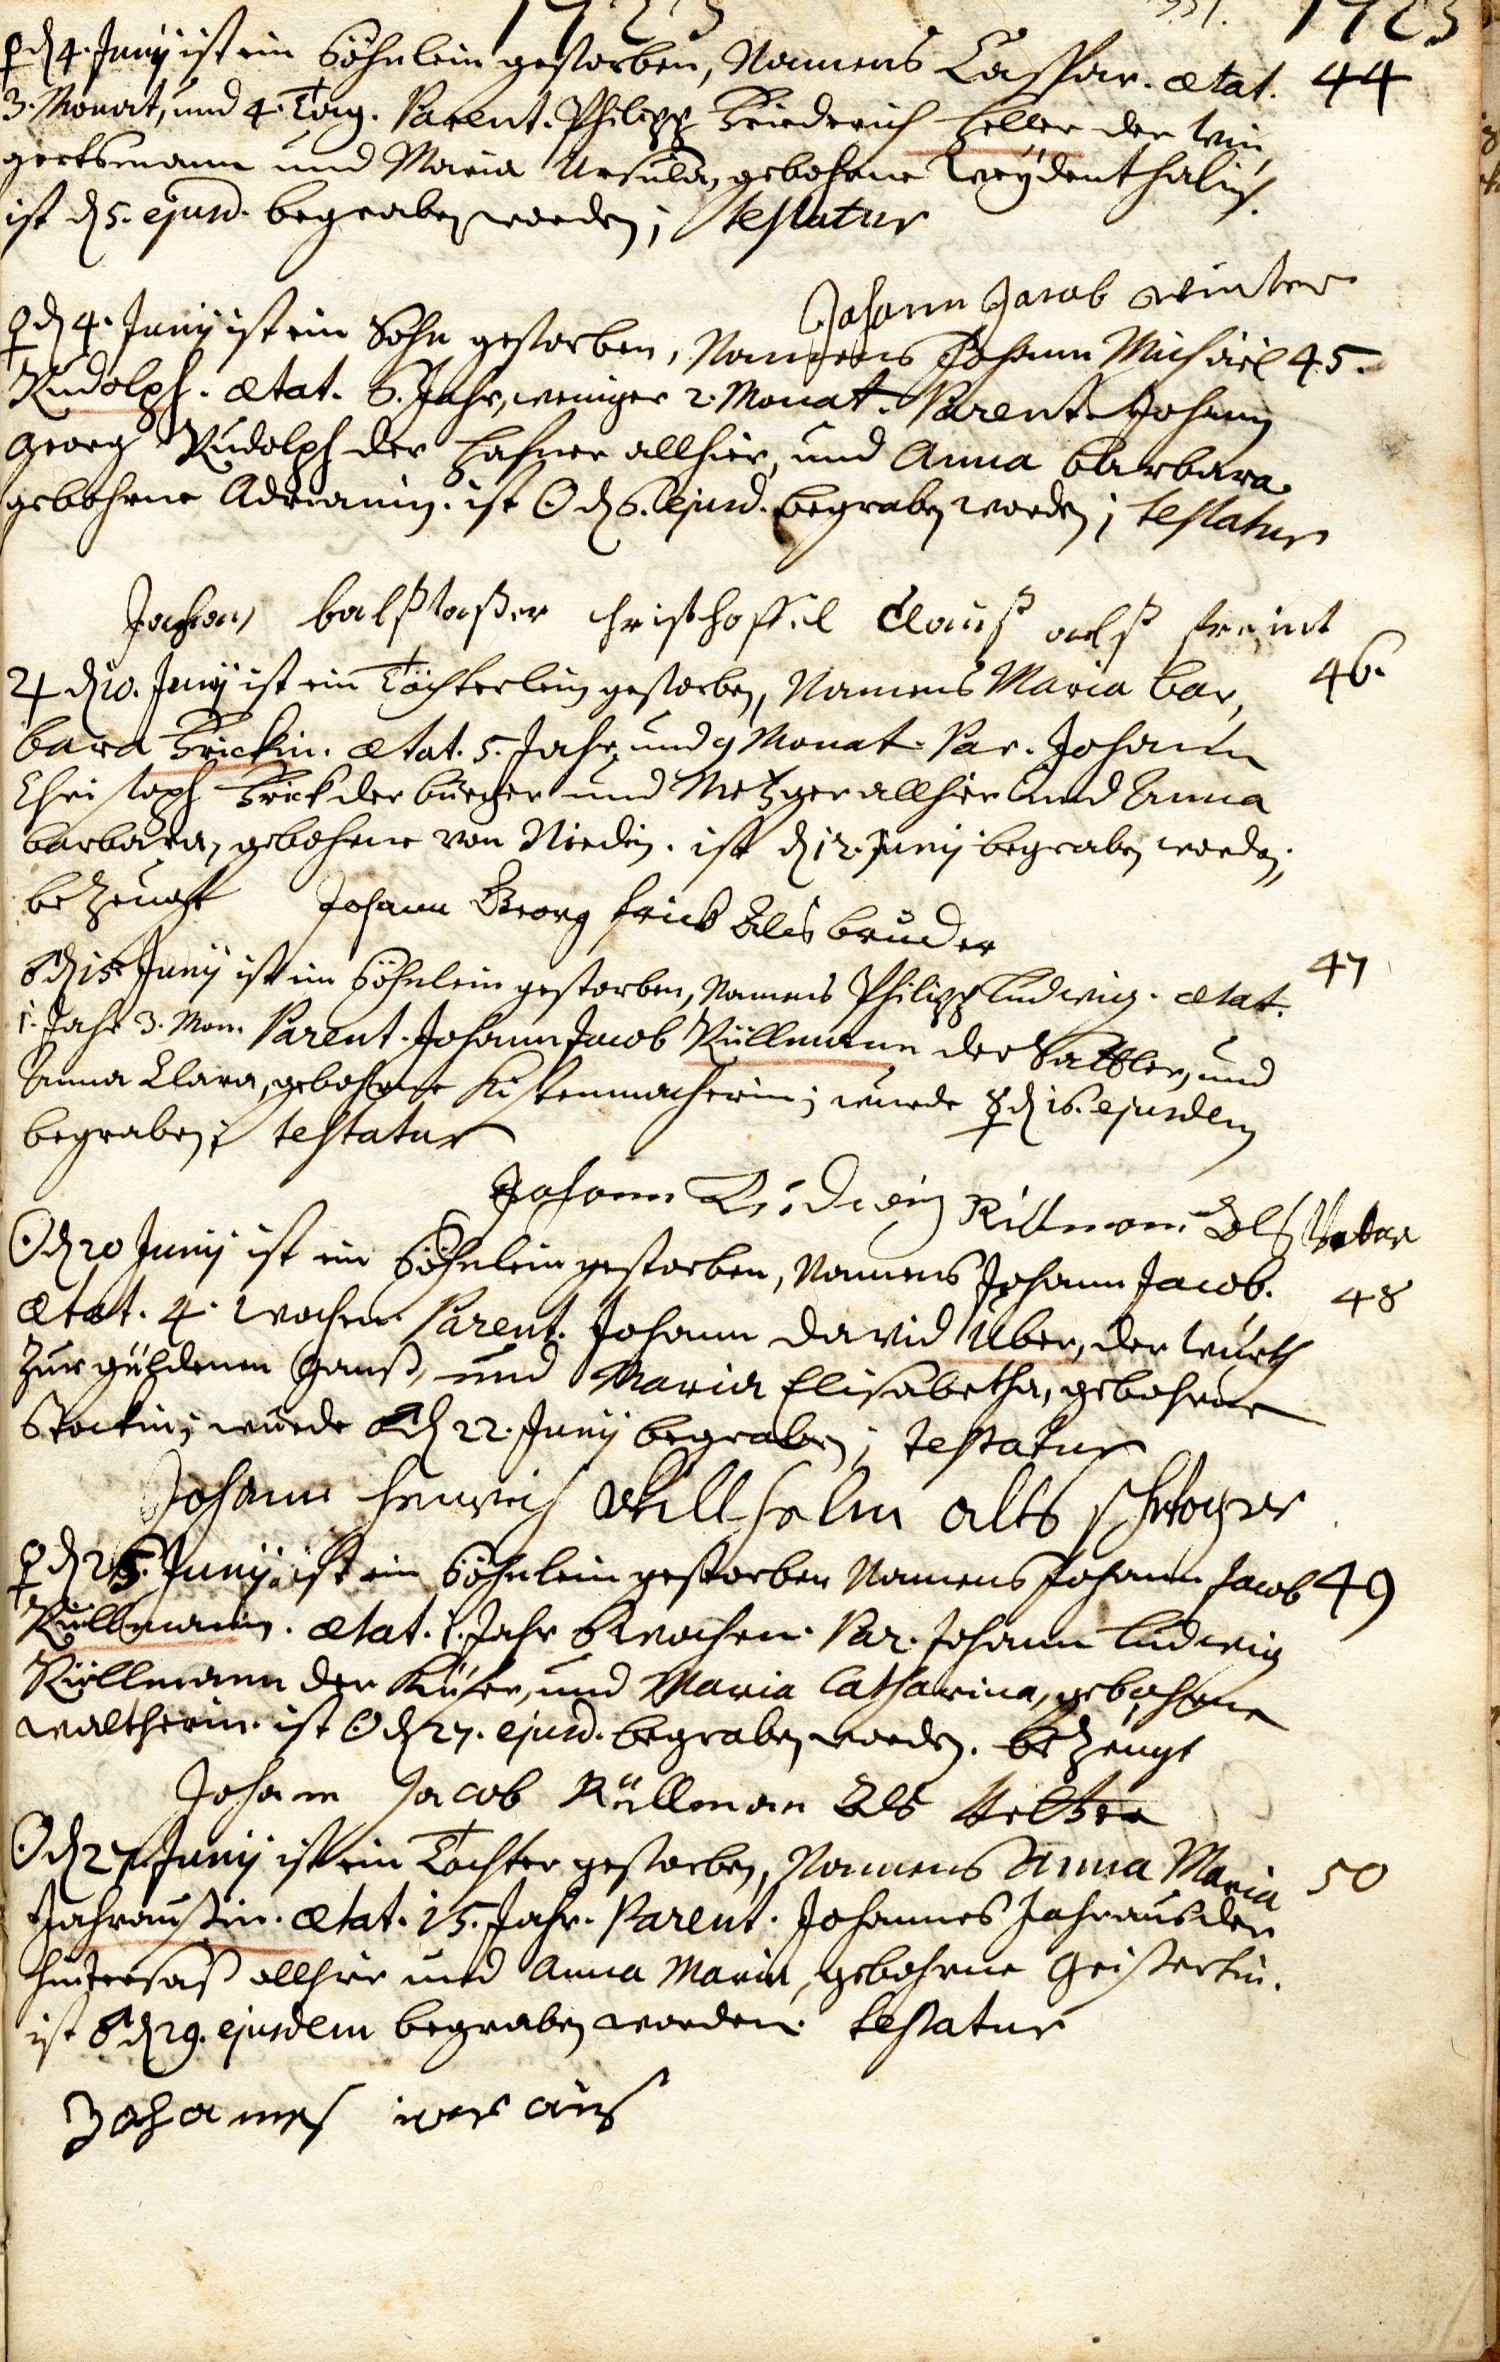 1723 331. 1723
♀ d. 4. Junij ist ein Söhnlein gestorben, Namens Casspar. ætat. 44
3. Monat, und 4. Tag. Parent. Philipp Friederich Heller der Win¬
gertsmann und Maria Ursula, gebohrne Weydenthalin.
ist d. 5. ejusd. begraben worden; testatur
Johann Jacob winter
♀ d. 4. Junij ist ein Sohn gestorben, Namens Johann Michäel 45.
Rudolph. ætat. 6. Jahr, weniger 2. Monat. Parent. Johann
Georg Rudolph der Hafner allhier, und Anna Barbara
gebohrne Adrianin. ist ☉ d. 6. ejusd. begraben worden; testatur
christhoffel Clauß alß
♃ d. 10. Junij ist ein Töchterlein gestorben, Namens Maria Bar¬ 46.
bara Frickin. ætat. 5. Jahr, und 9 Monat. Par. Johann
Christoph Frick der burger und Metzger allhier und Anna
barbara, gebohrne von Nieden. ist d. 12. Junij begraben worden;
bezeugt Johann Georg frick als bruder
♂ d. 15. Junij ist ein Söhnlein gestorben, Namens Philipp Ludwig. ætat. 47
1. Jahr 3. Mon. Parent. Johann Jacob Rüllmann der Sattler, und
Anna Clara, gebohrne Kistenmacherin; wurde ☿ d. 16. ejusdem
begraben; testatur
Johann Ludwig Rillmann als Vetter
☉ d. 20 Junij ist ein Söhnlein gestorben, Namens Johann Jacob. 48
ætat. 4. wochen Parent. Johann David Uber, der Würth
zur güldenen Ganß, und Maria Elisabetha, gebohrne
Stockin; wurde ♂ d. 22. Junij begraben; testatur
Johann henrich Willhelm alts schwoger
♀ d. 25. Junij ist ein Söhnlein gestorben Namens Johann Jacob 49
Rüllmann. ætat. 1. Jahr 6 wochen. Par. Johann Ludwig
Rüllmann der Küfer, und Maria Catharina, gebohrne
waltherin. ist ☉ d. 27. ejusd. begraben worden. bezeugt
Johann Jacob Rüllman als Vetter
☉ d. 27. Junij ist ein Tochter gestorben, Namens Anna Maria 50
Jahraußin. ætat. 15. Jahr. Parent. Johannes Jahraus der
Hintersaß allhier und Anna Maria, gebohrne Geisertin.
ist ♂ d. 29. ejusdem begraben worden. testatur
Johannes